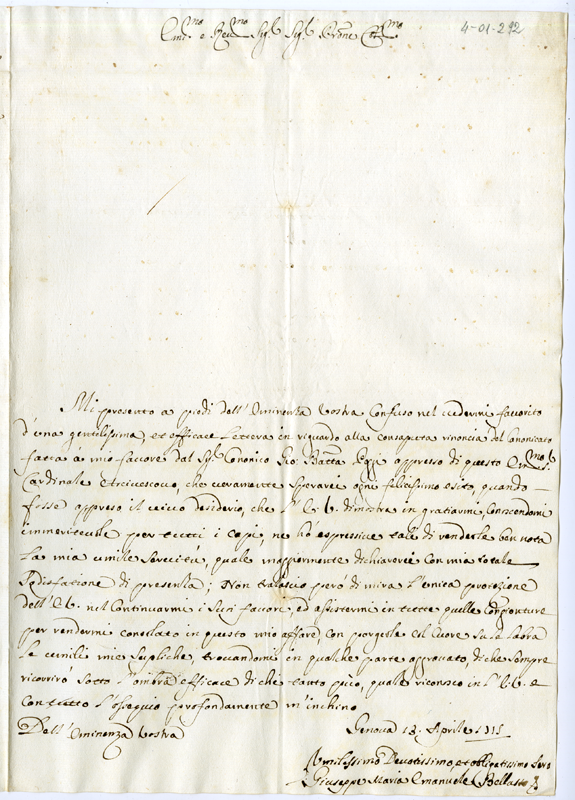 Em.mo e Rev.mo Sig.r Sig.r Prone Col.mo
4-01-292
Mi presento a piedi dell'Eminenza Vostra Confuso nel vedermi favorito
d'una gentilissima, et efficace Lettera in riguardo alla consaputa rinoncia del Canonicato
fatta à mio favore dal Sig.r Canonico Gio: Batta appresso di questo Em.mo Sig.r
Cardinale Arcivescovo, che veramente sperarei ogni felicissimo esito, quando
fosse appreso il vivo desiderio, che l'E.V. dimostra in gratiarmi, Conoscendomi
immeritevole per tutti i capi, ne hò espressive tali di renderle ben nota
La mia umile servitù, quale maggiormente dichiarerei con mia totale
Sodisfatione di presenza; Non tralascio però di mira l'unica protezione
dell'E.V. nel Continuarmi i Suoi favori, ed assistermi in tutte quelle Congionture
per rendermi consolato in questo mio affare, con porgerle col Cuore su le labra
Le umili mie Supliche, trovandomi in qualche parte aggravato di che sempre
ricorrirò Sotto l'ombra efficace di chi tanto può, quale riconosco in l'E.V. e
con tutto l'ossequio profondamente m'inchino
Dell'Eminenza Vostra
Genova 18. Aprile 1711
Umilissimo Devotissimo, et obligatissimo Servo
Giuseppe Maria Emanuele